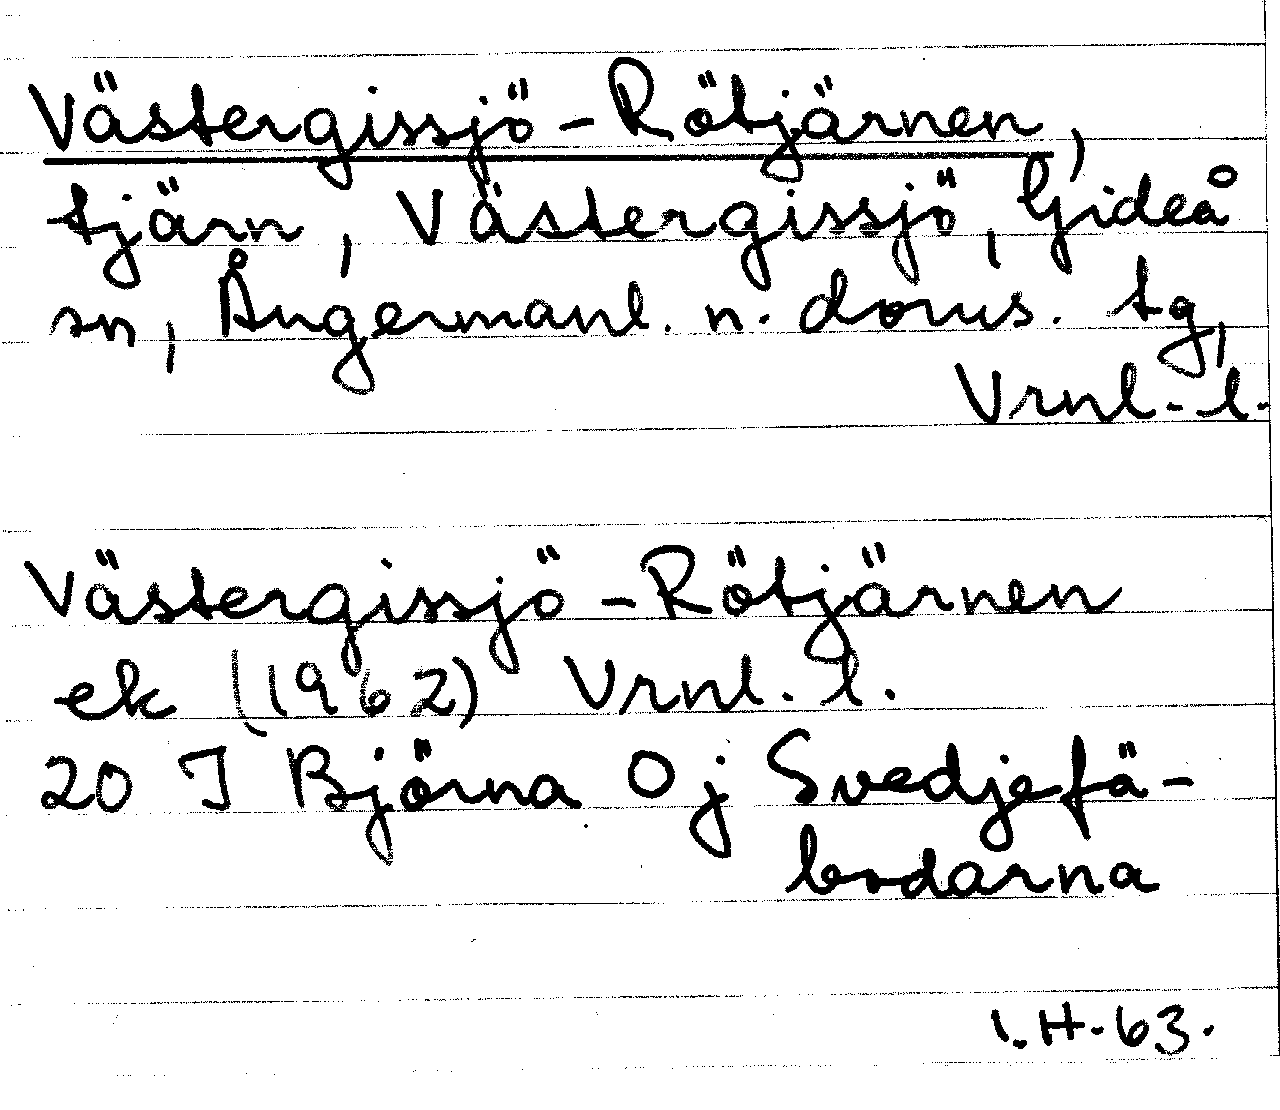 Västergissjö-Rötjärnen,
tjärn, Västergissjö, Gideå
sn, Ångermanl. n. doms. tg,
Vrnl.-l.
Västergissjö-Rötjärnen
ek (1962) Vrnl. l.
20 J Björna Oj Svedjefä-
bodarna
I.H.63.